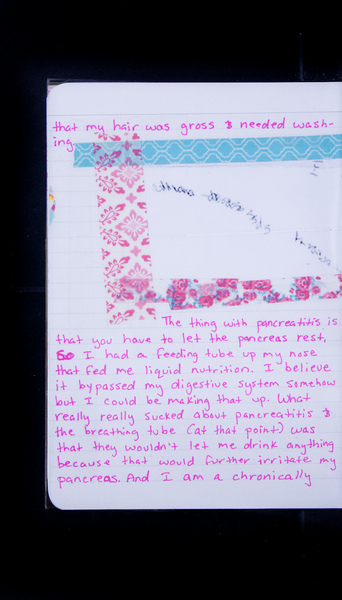 that my hair was gross & needed wash-
ing.
The thing with pancreatitis is
that you have to let the pancreas rest,
So I had a feeding tube up my nose
that fed me liquid nutrition. I believe
it bypassed my digestive system somehow
but I could be making that up. What
really really sucked about pancreatitis &
the breathing tube (at that point) was
that they wouldn't let me drink anything
because that would further irritate my
pancreas. And I am a chronically